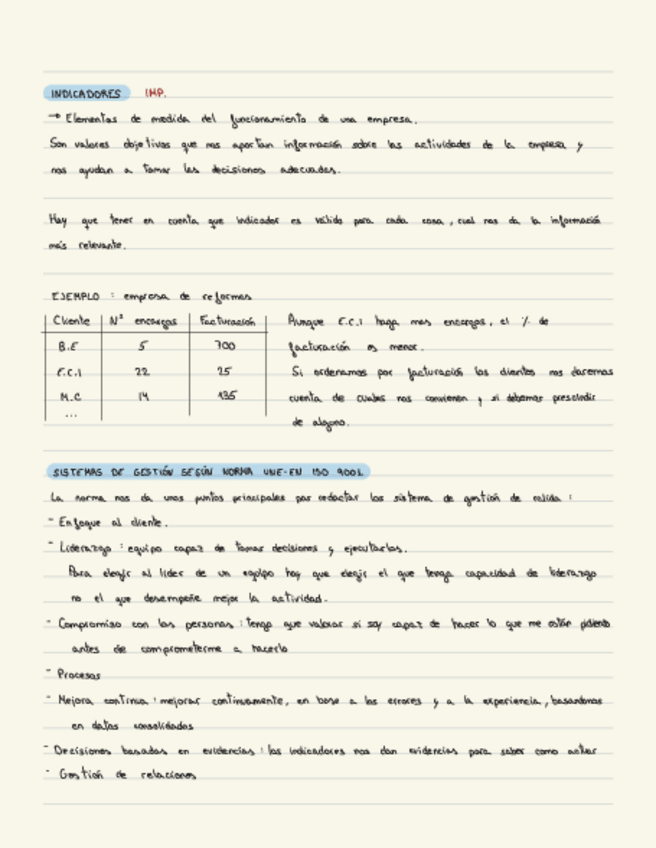 INDICADORES IMP.
→ Elementos de medida del funcionamiento de una empresa.
Son valores objetivos que nos aportan información sobre las actividades de la empresa y
nos ayudan a tomar las decisiones adecuadas.
Hay que tener en cuenta que indicador es válido para cada cosa, cual nos da la información
más relevante.
EJEMPLO : empresa de reformas
Cliente Nº encargos Facturación
B.E 5 700
E.C.I 22 25
M.C 14 135
...
Aunque E.C.I haga mas encargos, el % de
facturación es menor.
Si ordenamos por facturación los clientes nos daremos
cuenta de cuales nos convienen y si debemos prescindir
de alguno.
SISTEMAS DE GESTIÓN SEGÚN NORMA UNE-EN ISO 9001
La norma nos da unos puntos principales par redactar los sistema de gestión de calida :
- Enfoque al cliente.
- Liderazgo : equipo capaz de tomar decisiones y ejecutarlas.
Para elegir al líder de un equipo hay que elegir el que tenga capacidad de liderazgo
no el que desempeñe mejor la actividad.
- Compromiso con las personas : tengo que valorar si soy capaz de hacer lo que me están pidiendo
antes de comprometerme a hacerlo
- Procesos
- Mejora continua : mejorar continuamente, en base a los errores y a la experiencia, basandonos
en datos consolidados
- Decisiones basadas en evidencias : los indicadores nos dan evidencias para saber como actuar
- Gestión de relaciones